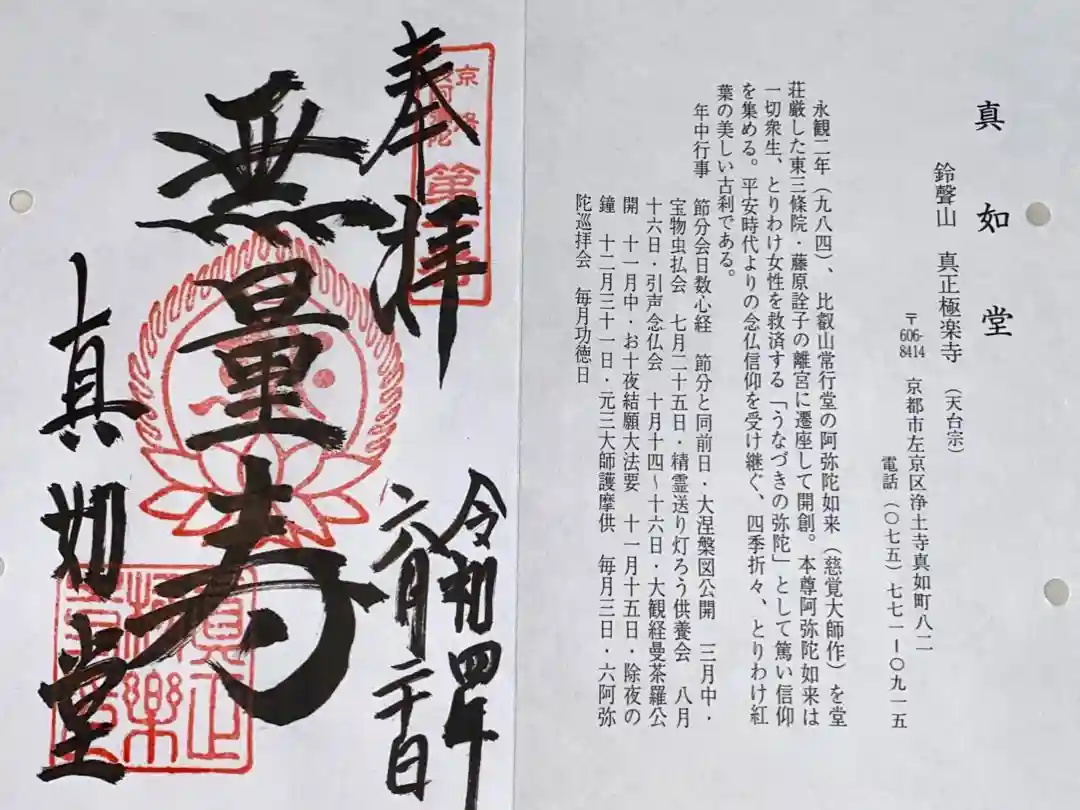 真如堂
鈴聲山　真正極楽寺　（天台宗）
〒606-8414　京都市左京区浄土寺真如町八二
電話（〇七五）七七一ー〇九一五
永観二年（九八四）、比叡山常行堂の阿弥陀如来（慈覚大師作）を堂
荘厳した東三條院・藤原詮子の離宮に遷座して開創。本尊阿弥陀如来は
一切衆生、とりわけ女性を救済する「うなづきの弥陀」として篤い信仰
を集める。平安時代よりの念仏信仰を受け継ぐ、四季折々、とりわけ紅
葉の美しい古刹である。
年中行事　節分会日数心経　節分と同前日・大涅槃図公開　三月中・
宝物虫払会　七月二十五日・精霊送り灯ろう供養会　八月
十六日・引声念仏会　十月十四～十六日・大観経曼茶羅公
開　十一月中・お十夜結願大法要　十一月十五日・除夜の
鐘　十二月三十一日・元三大師護摩供　毎月三日・六阿弥
陀巡拝会　毎月功徳日
奉拝
令和四年
六月二十日
無量寿
真如堂
真正
極樂